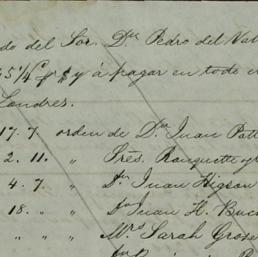 do del Sor. Dn Pedro del Val
y á pagar en todo e
Londres.
17. 7 orden de Dn Juan Patt
2. 11. " Pres. Ranquette y
4. 7. " Dn Juan Higson
18. " " Dn Juan H. Buc
" " " Mrs Sarah Grose